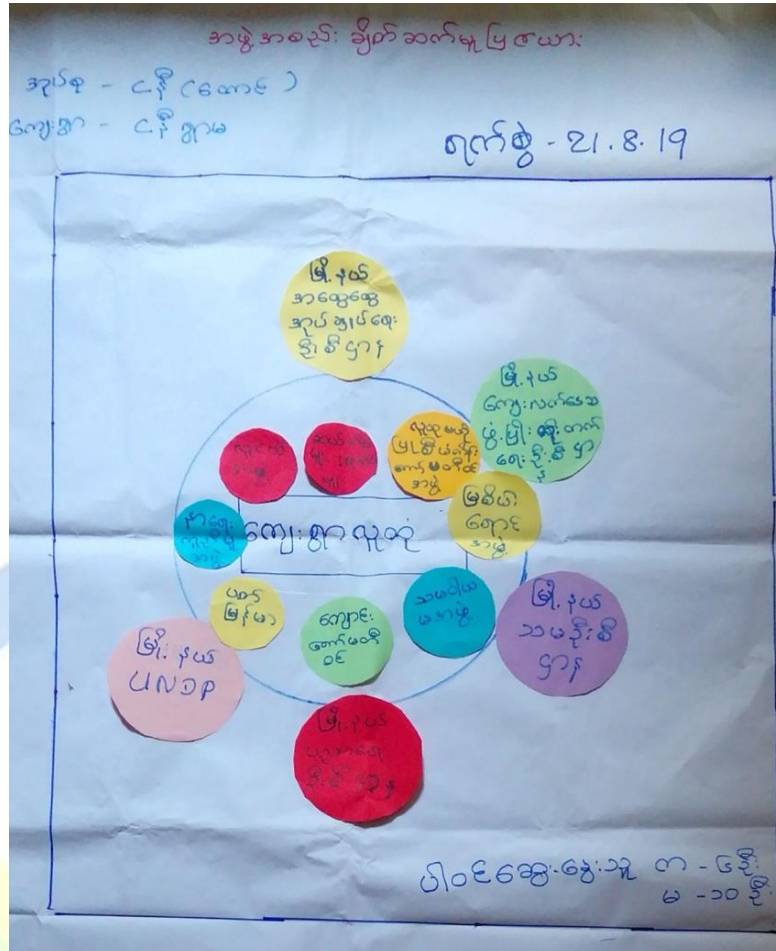 အဖွဲ့အစည်း ချိတ်ဆက်မှုပြဇယား
အုပ်စု - ငနီ (ထောင်)
ကျေးရွာ - ငနီရွာမ
ရက်စွဲ - 21.8.19
မြို့နယ်
အထွေထွေ
အုပ်ချုပ်ရေး
ဦးစီဌာန
မြို့နယ်
ကျေးလက်ဒေသ
ဖွံ့မြိုးတိုးတက်
ရေးဦးစီဌာန
လူထုဗဟို
ပြုစီမံကိန်း
ကော်မတီဝင်
အဖွဲ့
မြစိမ်း
ရောင်
အဖွဲ့
ကျေးရွာလူထု
ပတ်
မြန်မာ
ကျောင်း
ကော်မတီ
ဝင်
သမဝါယ
မအဖွဲ့
မြို့နယ်
သမဦးစီ
ဌာန
မြို့နယ်
ပလ၁စု
မြို့နယ်
ဦးစီဌာန
ပါဝင်ဆွေးနွေးသူ က - ၄ဦး
မ - ၁၀ဦး